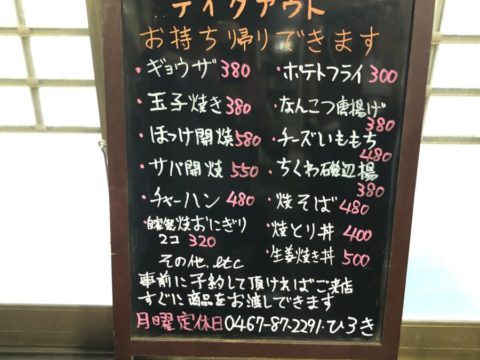 テイクアウト
お持ち帰りできます
・ギョウザ 380
・玉子焼き 380
・ほっけ開焼 580
・サバ開焼 550
・チャーハン 480
・自家製焼おにぎり
2コ 320
その他.etc
・ポテトフライ 300
・なんこつ唐揚げ
380
・チーズいももち
480
・ちくわ磯辺揚
380
・焼そば 480
・焼とり丼 400
・生姜焼き丼 500
事前に予約して頂ければご来店
すぐに商品をお渡しできます
月曜定休日 0467-87-2291.ひろき